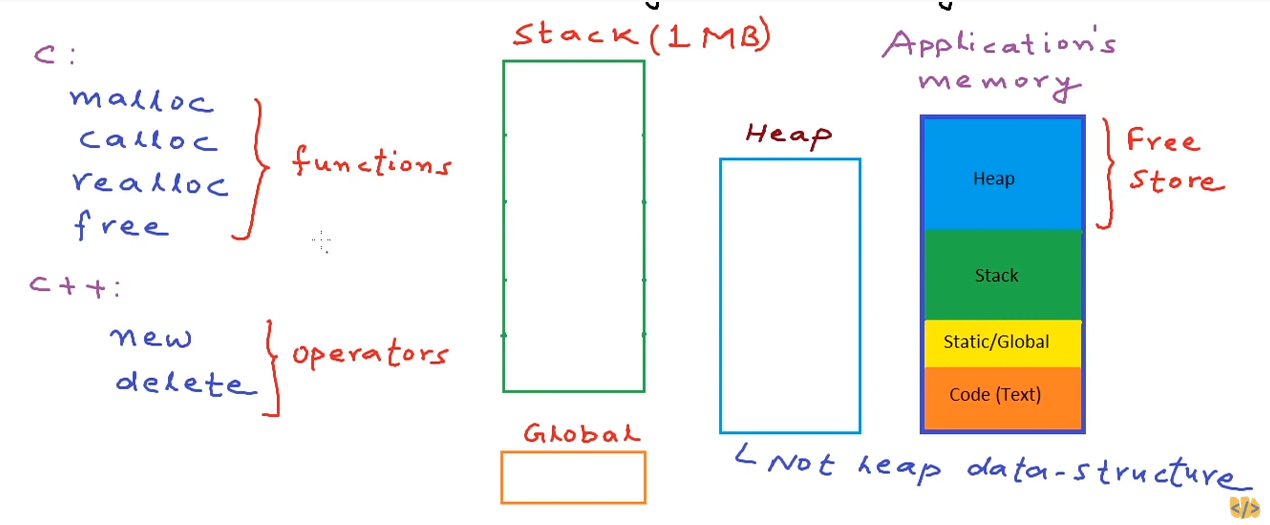 C:
malloc
calloc
realloc
free
functions
C++:
new
delete
operators
Stack (1 MB)
Global
Heap
Not heap data-structure
Application's
memory
Heap
Stack
Static/Global
Code (Text)
Free
Store
</>